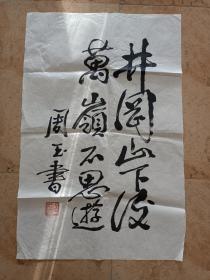 井岡山下後
萬嶺不思遊
周玉書